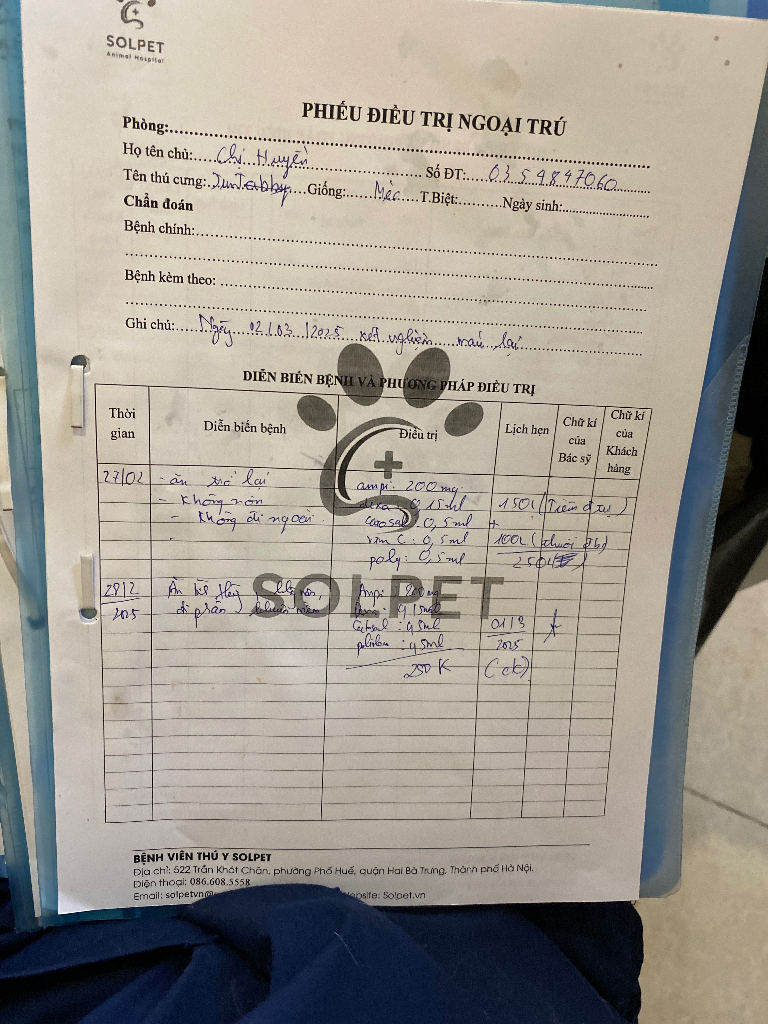 SOLPET
Animal Hospital
PHIẾU ĐIỀU TRỊ NGOẠI TRÚ
Phòng:
Họ tên chủ: Chị Huyền Số ĐT: 0359847060
Tên thú cưng: Giống: Mèo T.Biệt: Ngày sinh:
Chẩn đoán
Bệnh chính:
Bệnh kèm theo:
Ghi chú: Ngày 02/03/2025 xét nghiệm máu lại
DIỄN BIẾN BỆNH VÀ PHƯƠNG PHÁP ĐIỀU TRỊ
Thời gian Diễn biến bệnh Điều trị Lịch hẹn Chữ kí của Bác sỹ Chữ kí của Khách hàng
27/02 - ăn trở lại ampi: 200 mg
- Không nôn dexa: 0,15ml 150k (Tiêm đtrị)
- Không đi ngoài : 0,5ml +
vtm C: 0,5ml 100k
poly: 0,5ml 250k
28/2 2025 Ampi: 200mg
đi phân khuôn mềm
: 0,5ml 01/3
: 0,5ml 2025
250K (ck)
SOLPET
BỆNH VIỆN THÚ Y SOLPET
Địa chỉ: 522 Trần Khát Chân, phường Phố Huế, quận Hai Bà Trưng, Thành phố Hà Nội.
Điện thoại: 086.608.5558
Email: solpetvn@ Website: Solpet.vn